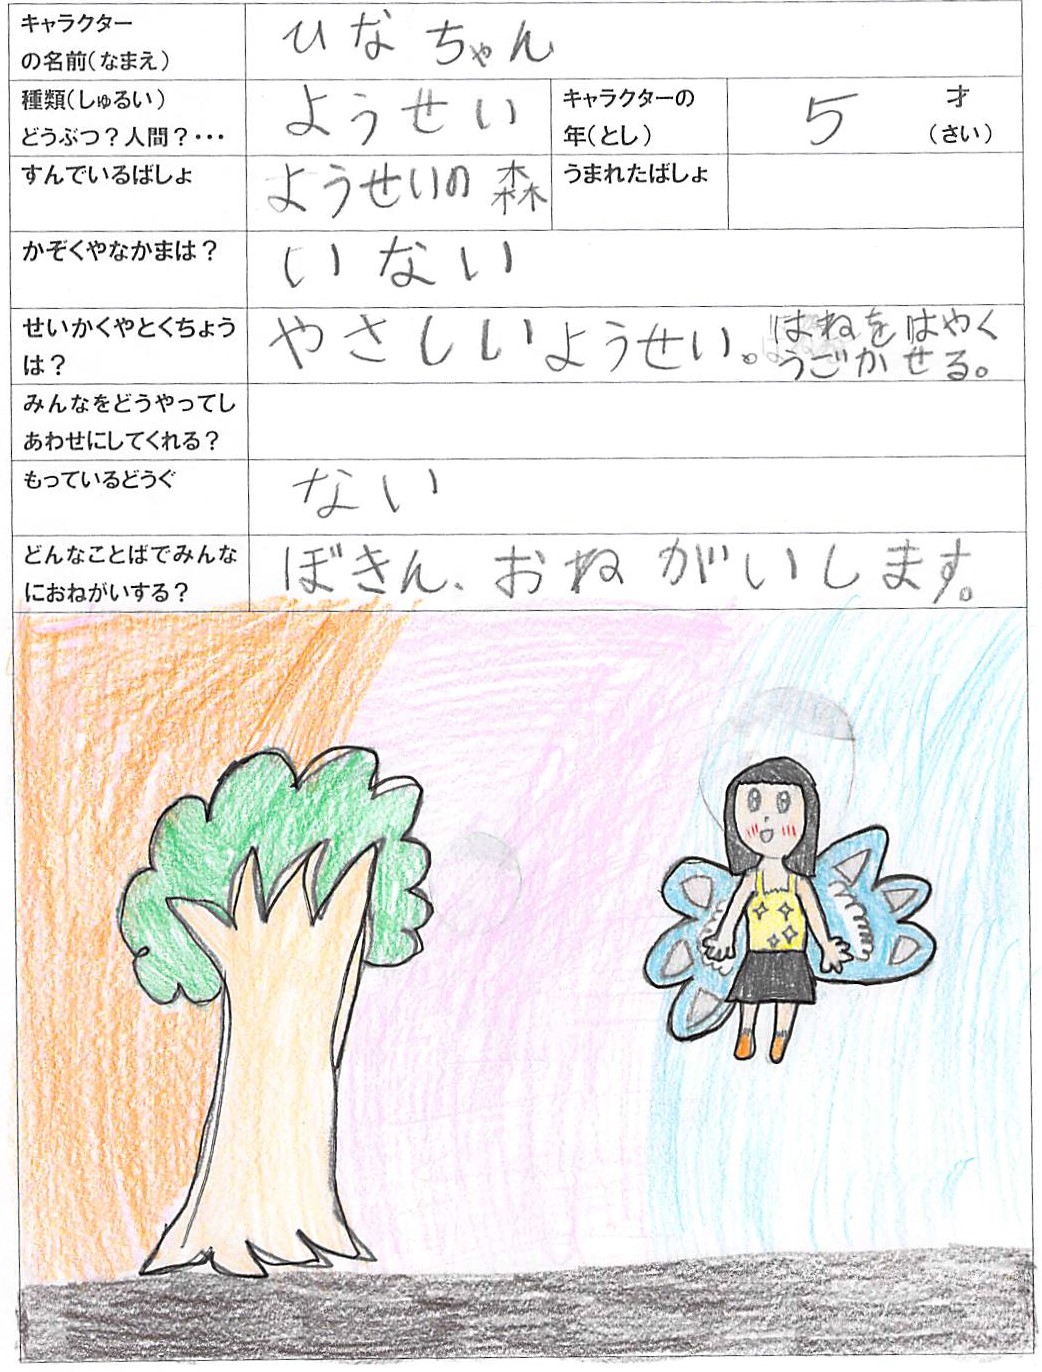 キャラクター
の名前(なまえ)
ひなちゃん
種類(しゅるい)
どうぶつ？人間？・・・
ようせい
キャラクターの
年(とし)
5
才
(さい)
すんでいるばしょ
ようせいの森
うまれたばしょ
かぞくやなかまは？
いない
せいかくやとくちょう
は？
やさしいようせい。はねをはやく
うごかせる。
みんなをどうやってし
あわせにしてくれる？
もっているどうぐ
ない
どんなことばでみんな
におねがいする？
ぼきん、おねがいします。